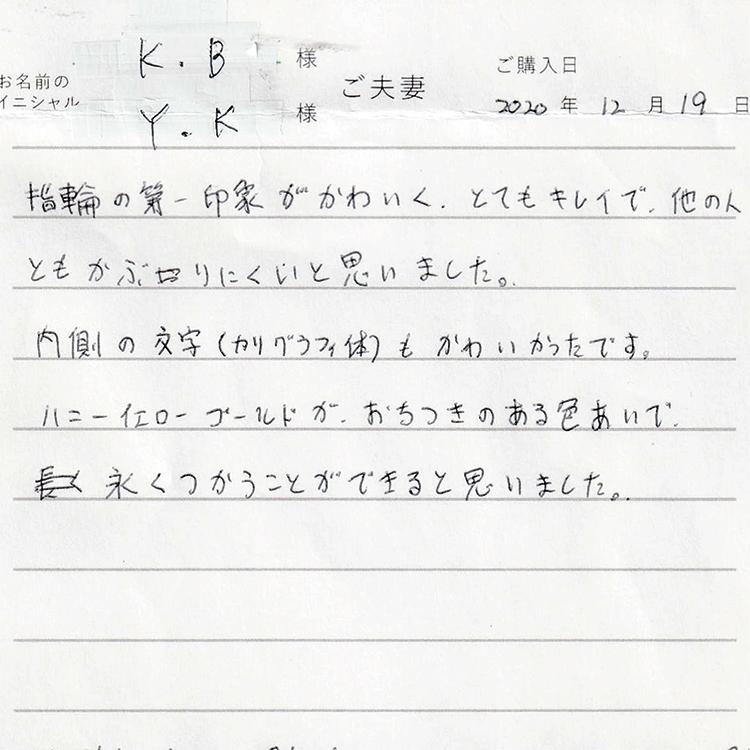 お名前の
イニシャル
K.B 様
Y.K 様
ご夫妻
ご購入日
2020年12月19日
指輪の第一印象がかわいく、とてもキレイで、他の人
ともかぶりにくいと思いました。
内側の文字(カリグラフィ体)もかわいかったです。
ハニーイエローゴールドが、おちつきのある色あいで、
永くつかうことができると思いました。